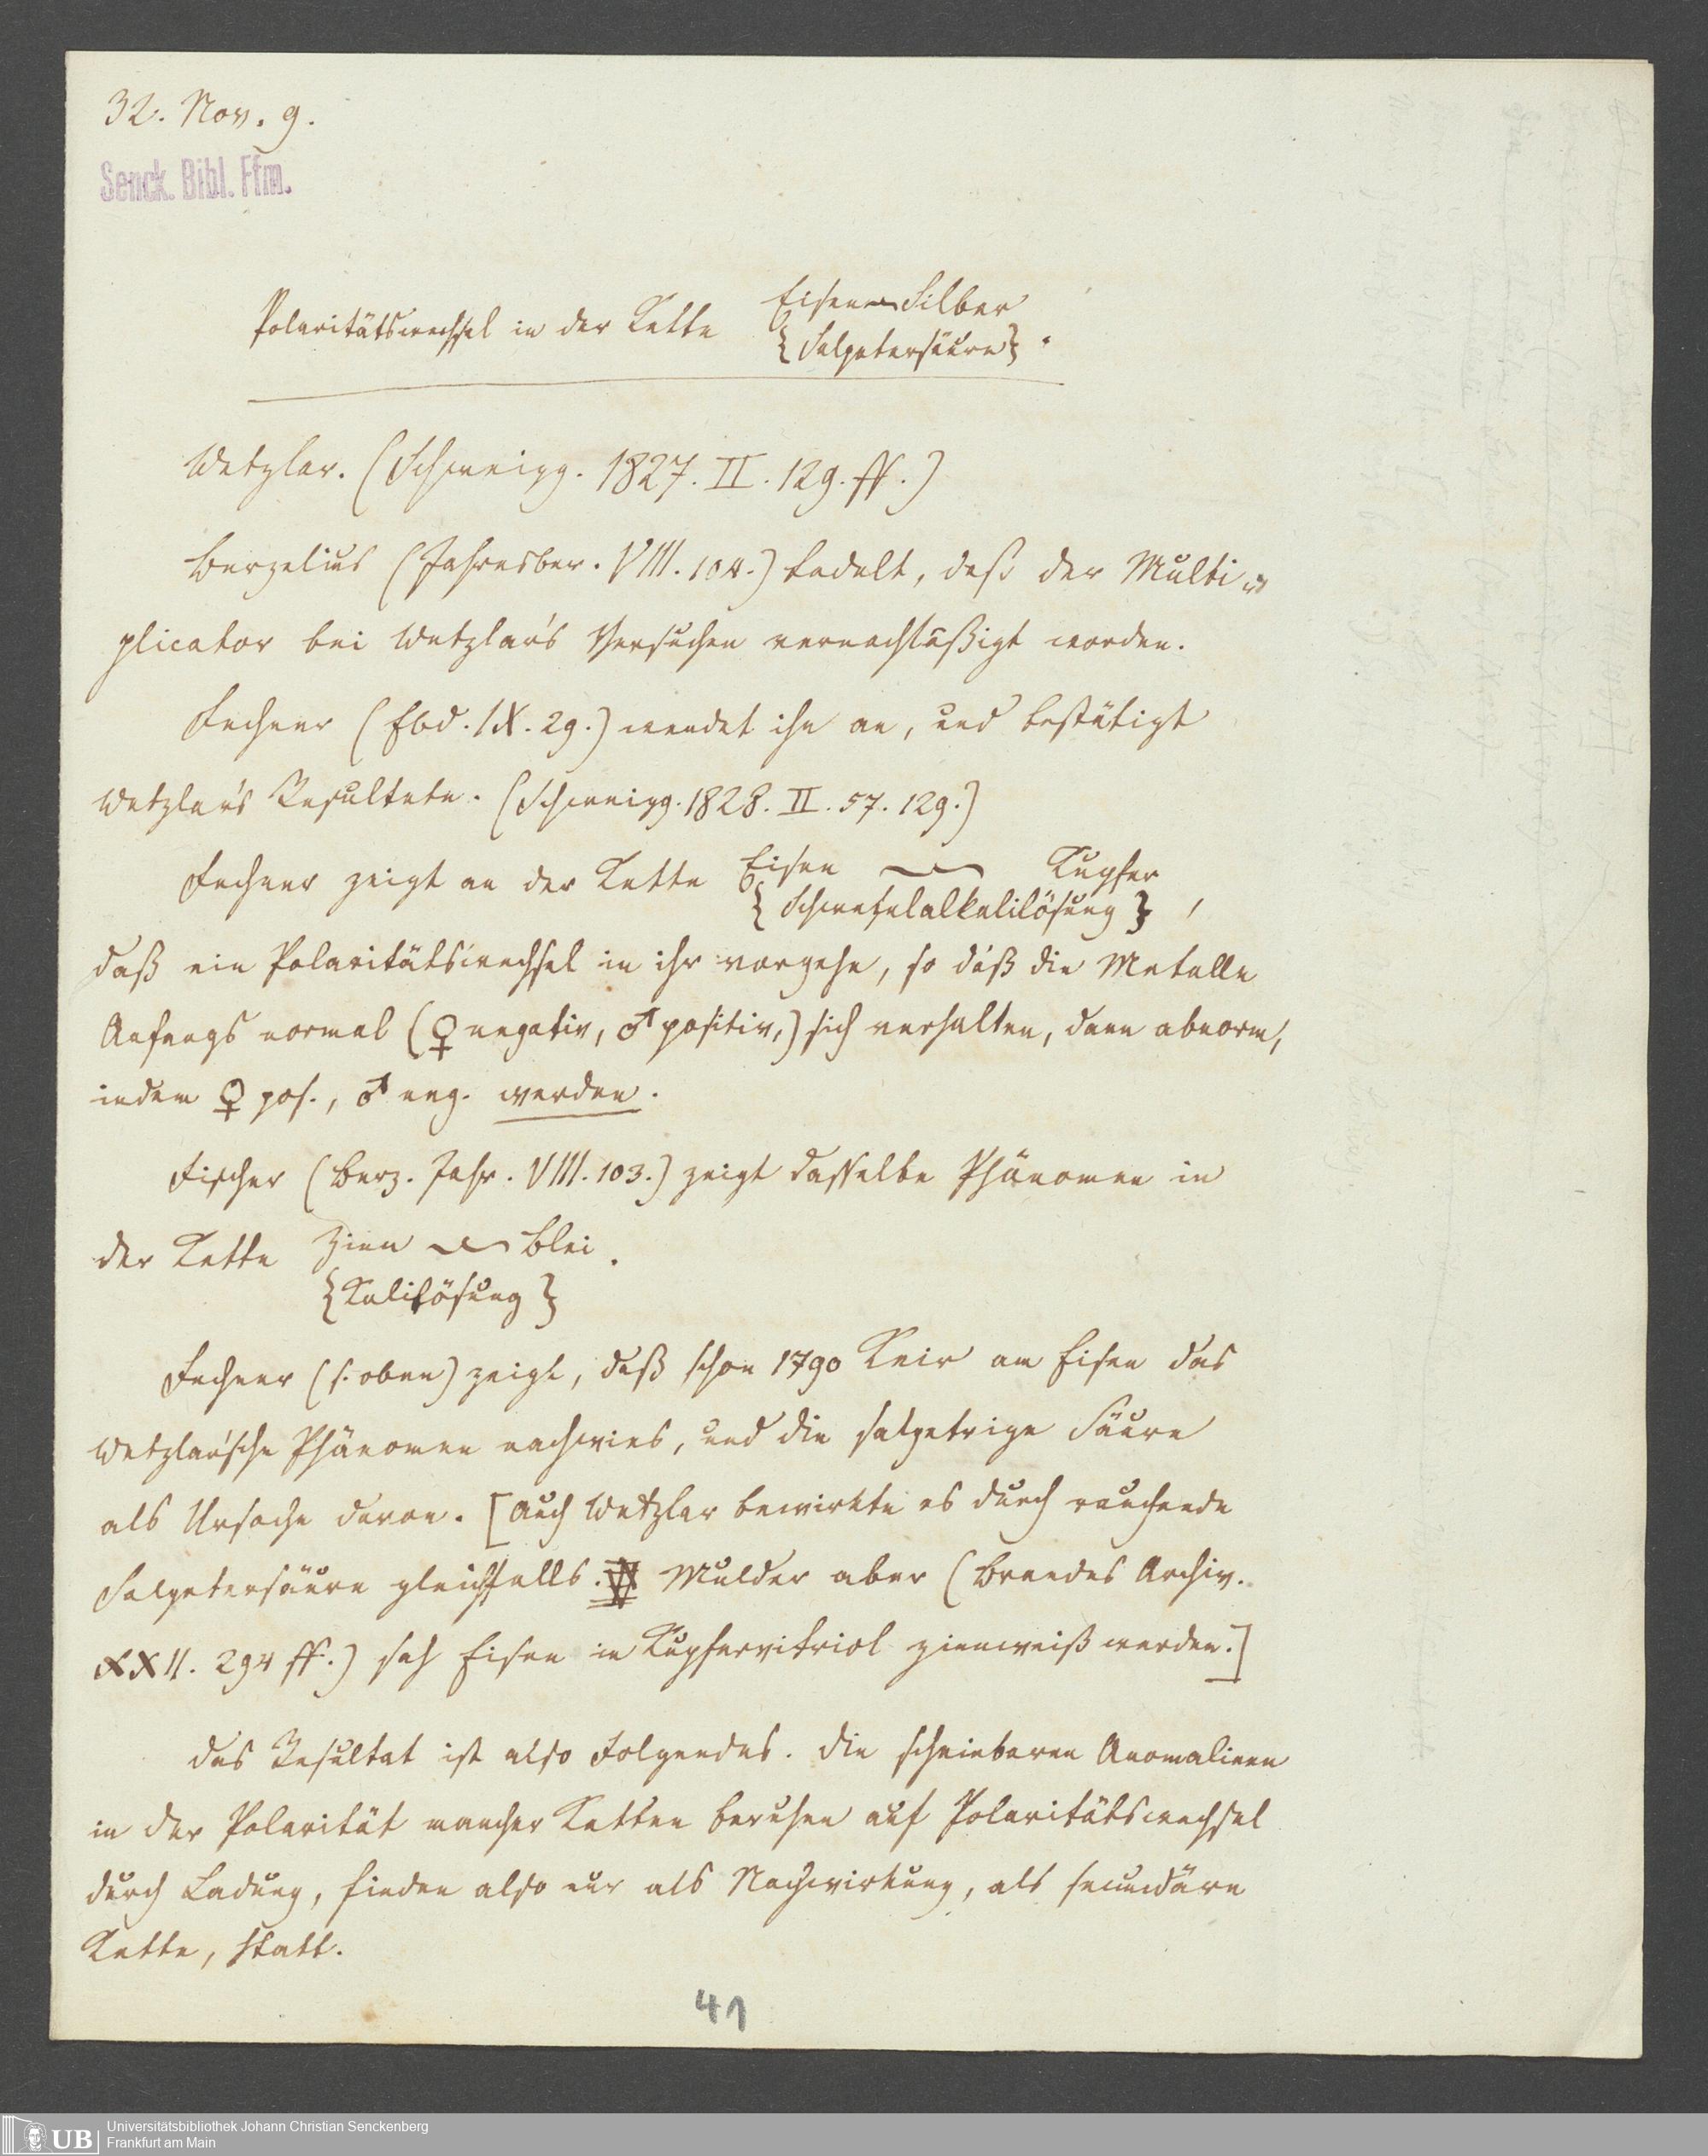 32. Nov. 9.
Senck. Bibl. Ffm.
Polaritätswechsel in der Kette Eisen Silber
{Salpetersäure} .
Wetzlar. (Schweigg. 1827. II. 129. ff.)
Berzelius (Jahresber. VIII. 104.) tadelt, daß der Multi-
plicator bei Wetzlar's Versuchen vernachläßigt worden.
Fechner (Ebd. IX. 29.) wendet ihn an, und bestätigt
Wetzlar's Resultate. (Schweigg. 1828. II. 57. 129.)
Fechner zeigt an der Kette Eisen Kupfer
{Schwefelalkalilösung} ,
daß ein Polaritätswechsel in ihr vorgehe, so daß die Metalle
Anfangs normal (♀ negativ, ♂ positiv,) sich verhalten, dann abnorm,
indem ♀ pos., ♂ neg. werden.
Fischer (Berz. Jahr. VIII. 103.) zeigt dasselbe Phänomen in
der Kette Zinn Blei .
{Kalilösung}
Fechner (s. oben) zeigt, daß schon 1790 Keir am Eisen das
Wetzlar'sche Phänomen nachwies, und die salpetrige Säure
als Ursache davon. [Auch Wetzlar bewirkte es durch rauchende
Salpetersäure gleichfalls. Mulder aber (Brandes Archiv.
XXII. 294 ff.) sah Eisen in Kupfervitriol zinnweiß werden.]
Das Resultat ist also Folgendes. Die scheinbaren Anomalieen
in der Polarität mancher Ketten beruhen auf Polaritätswechsel
durch Ladung, finden also nur als Nachwirkung, als secundäre
Kette, statt.
41
UB
Universitätsbibliothek Johann Christian Senckenberg
Frankfurt am Main